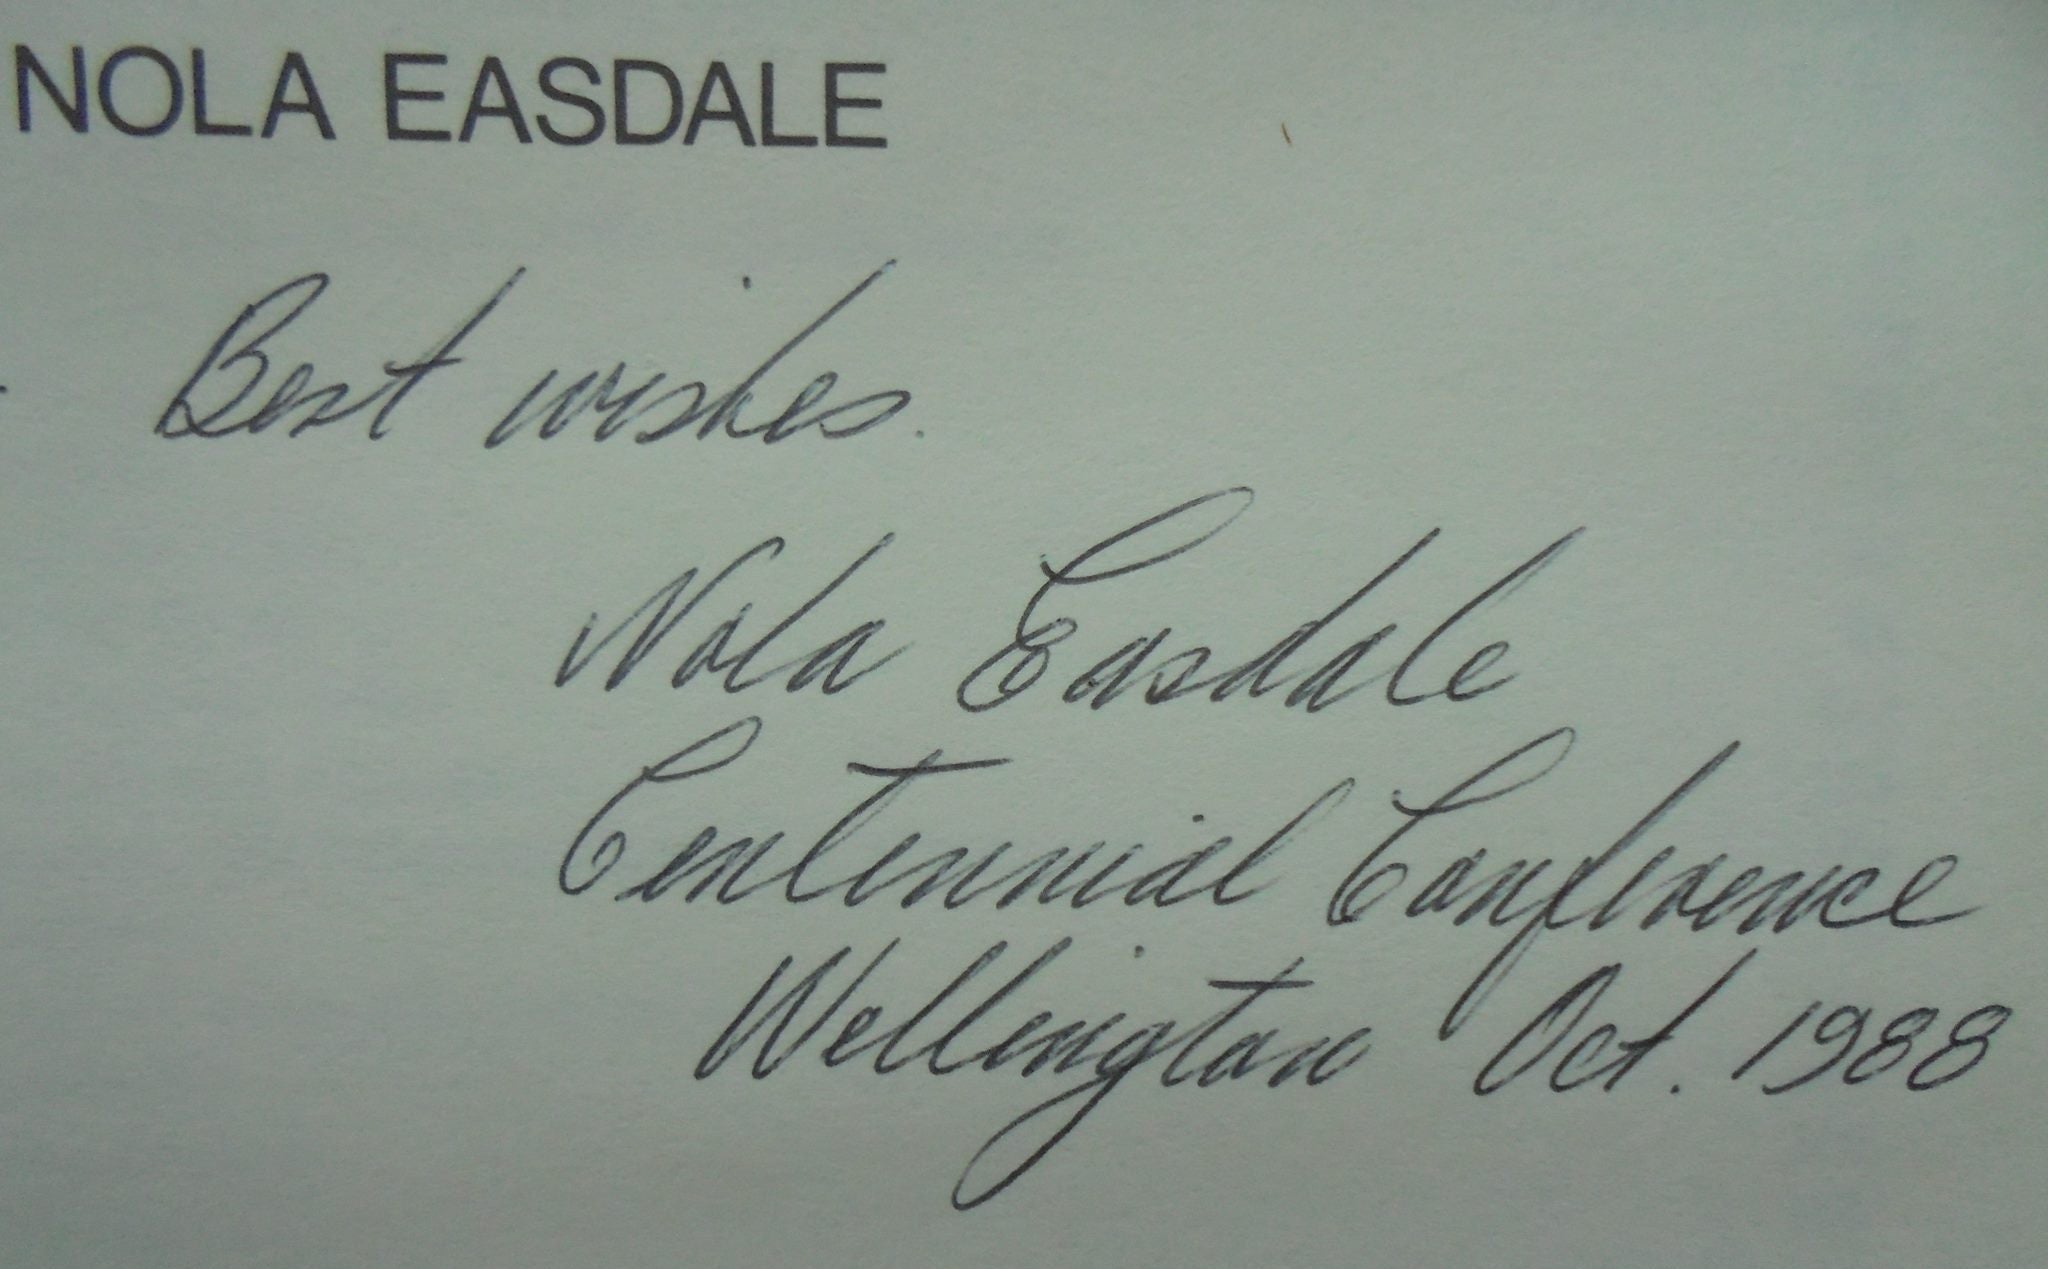 NOLA EASDALE
Best wishes.
Nola Easdale
Centennial Conference
Wellington Oct. 1988